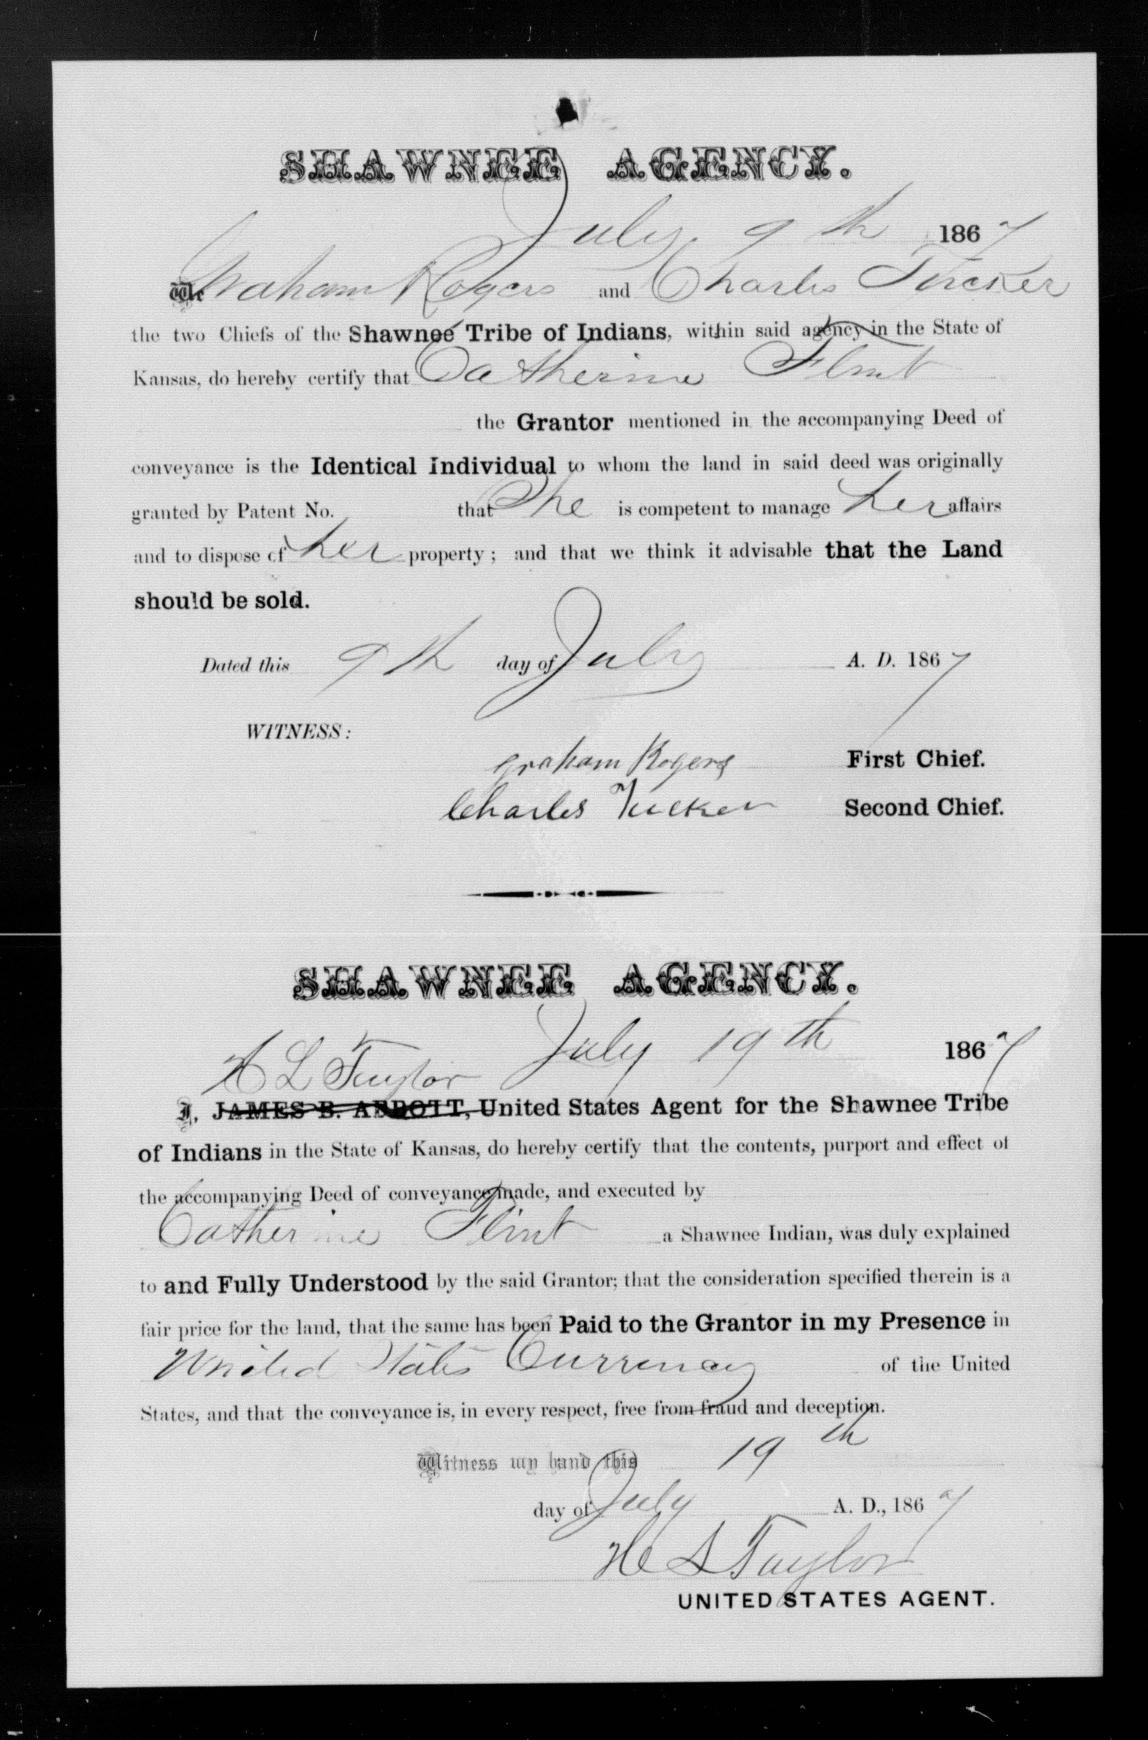 SHAWNEE AGENCY.
July 9th 1867
We Graham Rogers and Charles Tucker
the two Chiefs of the Shawnee Tribe of Indians, within said agency in the State of
Kansas, do hereby certify that Catherine Flint
the Grantor mentioned in the accompanying Deed of
conveyance is the Identical Individual to whom the land in said deed was originally
granted by Patent No. that She is competent to manage her affairs
and to dispose of her property; and that we think it advisable that the Land
should be sold.
Dated this 9th day of July A. D. 1867
WITNESS:
Graham Rogers First Chief.
Charles Tucker Second Chief.
SHAWNEE AGENCY.
July 19th 1867
H L Taylor
I, JAMES B. ABBOTT, United States Agent for the Shawnee Tribe
of Indians in the State of Kansas, do hereby certify that the contents, purport and effect of
the accompanying Deed of conveyance made, and executed by
Catherine Flint a Shawnee Indian, was duly explained
to and Fully Understood by the said Grantor; that the consideration specified therein is a
fair price for the land, that the same has been Paid to the Grantor in my Presence in
United States Currency of the United
States, and that the conveyance is, in every respect, free from fraud and deception.
Witness my hand this 19th
day of July A. D., 1867
H L Taylor
UNITED STATES AGENT.